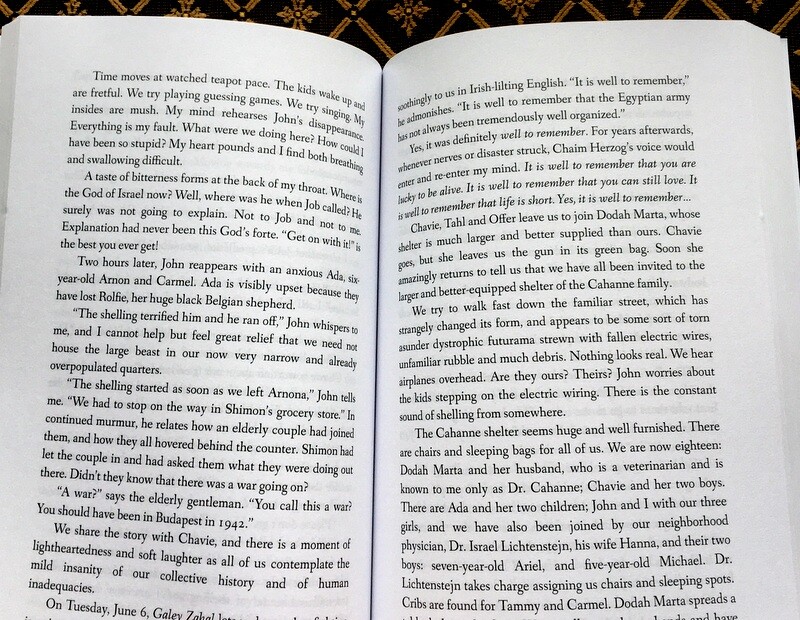 Time moves at watched teapot pace. The kids wake up and
are fretful. We try playing guessing games. We try singing. My
insides are mush. My mind rehearses John's disappearance.
Everything is my fault. What were we doing here? How could I
have been so stupid? My heart pounds and I find both breathing
and swallowing difficult.
A taste of bitterness forms at the back of my throat. Where is
the God of Israel now? Well, where was he when Job called? He
surely was not going to explain. Not to Job and not to me.
Explanation had never been this God's forte. "Get on with it!" is
the best you ever get!
Two hours later, John reappears with an anxious Ada, six-
year-old Arnon and Carmel. Ada is visibly upset because they
have lost Rolfie, her huge black Belgian shepherd.
"The shelling terrified him and he ran off," John whispers to
me, and I cannot help but feel great relief that we need not
house the large beast in our now very narrow and already
overpopulated quarters.
"The shelling started as soon as we left Arnona," John tells
me. "We had to stop on the way in Shimon's grocery store." In
continued murmur, he relates how an elderly couple had joined
them, and how they all hovered behind the counter. Shimon had
let the couple in and had asked them what they were doing out
there. Didn't they know that there was a war going on?
"A war?" says the elderly gentleman. "You call this a war?
You should have been in Budapest in 1942."
We share the story with Chavie, and there is a moment of
lightheartedness and soft laughter as all of us contemplate the
mild insanity of our collective history and of human
inadequacies.
On Tuesday, June 6, Galey Zahal
soothingly to us in Irish-lilting English. "It is well to remember,"
he admonishes. "It is well to remember that the Egyptian army
has not always been tremendously well organized."
Yes, it was definitely well to remember. For years afterwards,
whenever nerves or disaster struck, Chaim Herzog's voice would
enter and re-enter my mind. It is well to remember that you are
lucky to be alive. It is well to remember that you can still love. It
is well to remember that life is short. Yes, it is well to remember...
Chavie, Tahl and Offer leave us to join Dodah Marta, whose
shelter is much larger and better supplied than ours. Chavie
goes, but she leaves us the gun in its green bag. Soon she
amazingly returns to tell us that we have all been invited to the
larger and better-equipped shelter of the Cahanne family.
We try to walk fast down the familiar street, which has
strangely changed its form, and appears to be some sort of torn
asunder dystrophic futurama strewn with fallen electric wires,
unfamiliar rubble and much debris. Nothing looks real. We hear
airplanes overhead. Are they ours? Theirs? John worries about
the kids stepping on the electric wiring. There is the constant
sound of shelling from somewhere.
The Cahanne shelter seems huge and well furnished. There
are chairs and sleeping bags for all of us. We are now eighteen:
Dodah Marta and her husband, who is a veterinarian and is
known to me only as Dr. Cahanne; Chavie and her two boys.
There are Ada and her two children; John and I with our three
girls, and we have also been joined by our neighborhood
physician, Dr. Israel Lichtenstejn, his wife Hanna, and their two
boys: seven-year-old Ariel, and five-year-old Michael. Dr.
Lichtenstejn takes charge assigning us chairs and sleeping spots.
Cribs are found for Tammy and Carmel. Dodah Marta spreads a